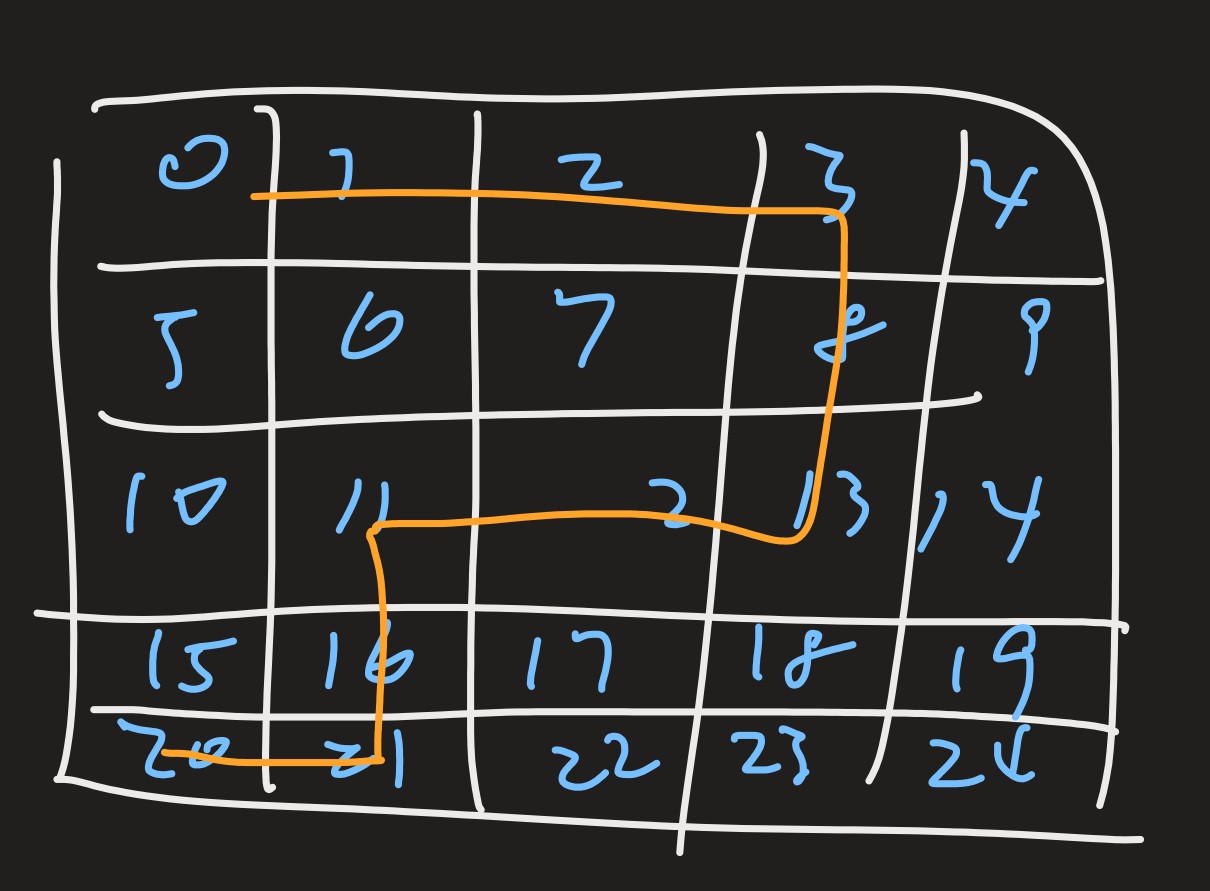 0 1 2 3 4
5 6 7 8 9
10 11 2 13 14
15 16 17 18 19
20 21 22 23